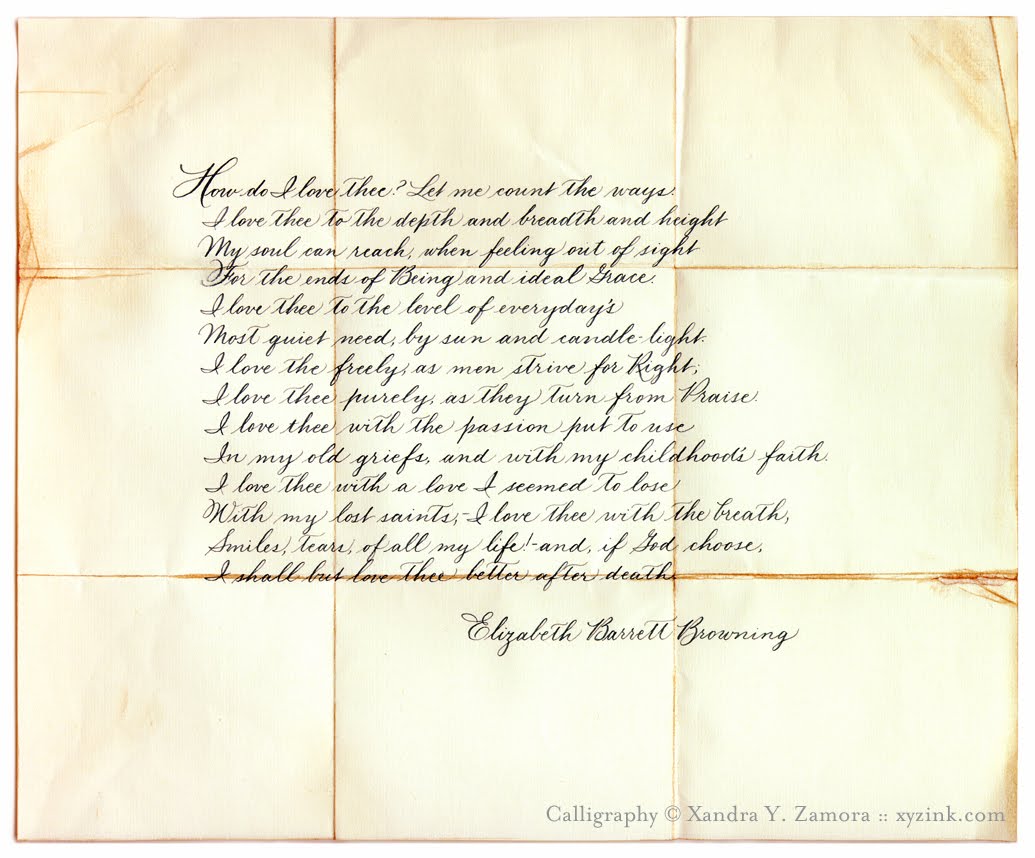 How do I love thee? Let me count the ways.
I love thee to the depth and breadth and height
My soul can reach, when feeling out of sight
For the ends of Being and ideal Grace.
I love thee to the level of everyday's
Most quiet need, by sun and candle-light.
I love the freely, as men strive for Right;
I love thee purely, as they turn from Praise.
I love thee with the passion put to use
In my old griefs, and with my childhood's faith.
I love thee with a love I seemed to lose
With my lost saints,-I love thee with the breath,
Smiles, tears, of all my life!-and, if God choose,
I shall but love thee better after death.
Elizabeth Barrett Browning
Calligraphy © Xandra Y. Zamora :: xyzink.com